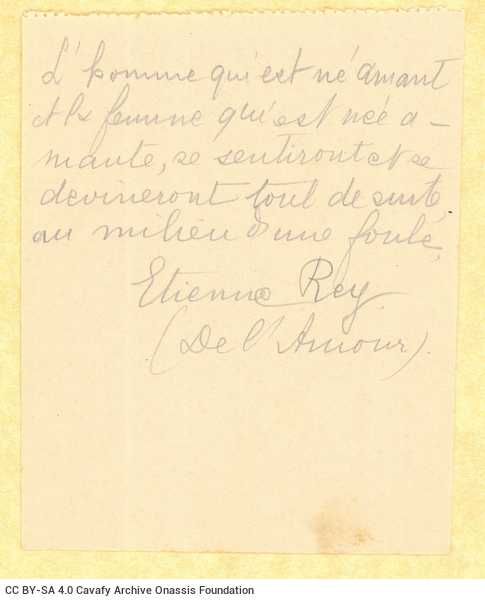 L'homme qui est né amant
et la femme qui est née a-
mante, se sentiront et se
devineront tout de suite
au milieu d'une foule.
Etienne Rey
(De l'Amour).
CC BY-SA 4.0 Cavafy Archive Onassis Foundation